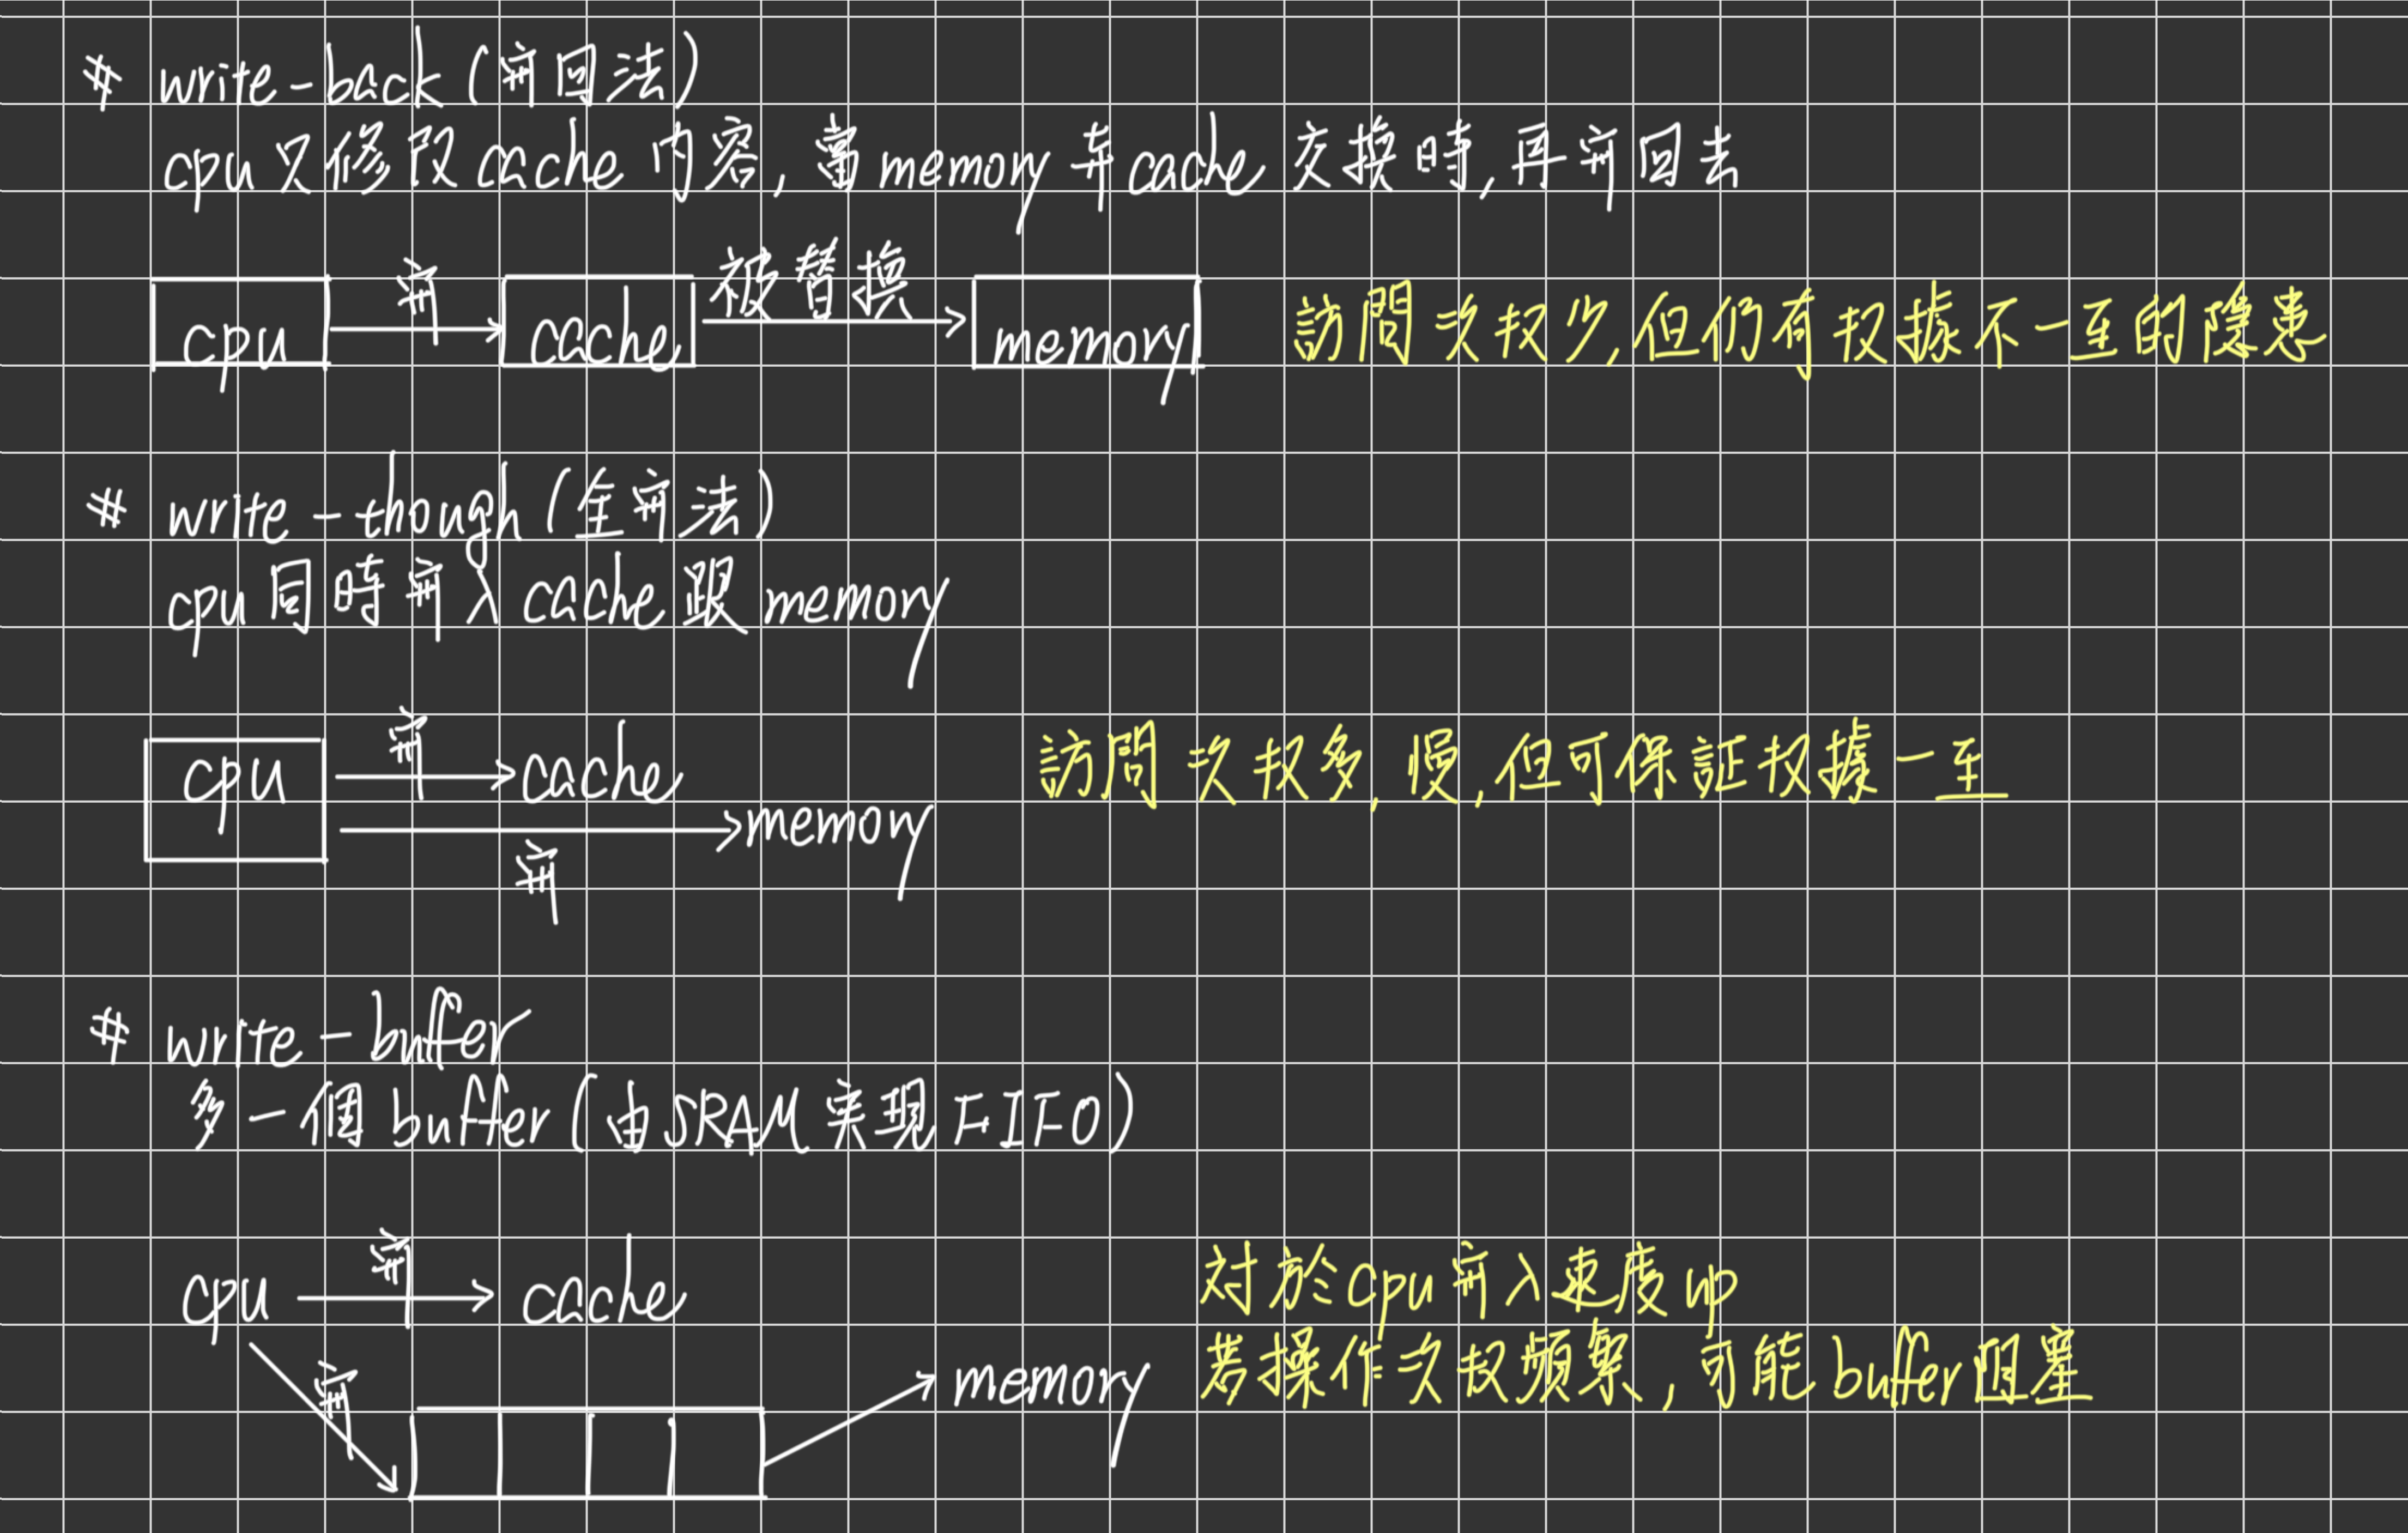 # write-back (寫回法)
cpu 只修改 cache 內容, 當 memory 與 cache 交換時, 再寫回去
cpu 寫 cache 被替換 memory 訪問次數少, 但仍有數據不一至的隱患
# write-though (全寫法)
cpu 同時寫入 cache 跟 memory
cpu 寫 cache 訪問次數多, 慢, 但可保証數據一至
memory
寫
# write-buffer
多一個 buffer (由 SRAM 実現 FIFO)
cpu 寫 cache 对於 cpu 寫入速度 up
寫 memory 若操作次數頻繁, 可能 buffer 阻塞